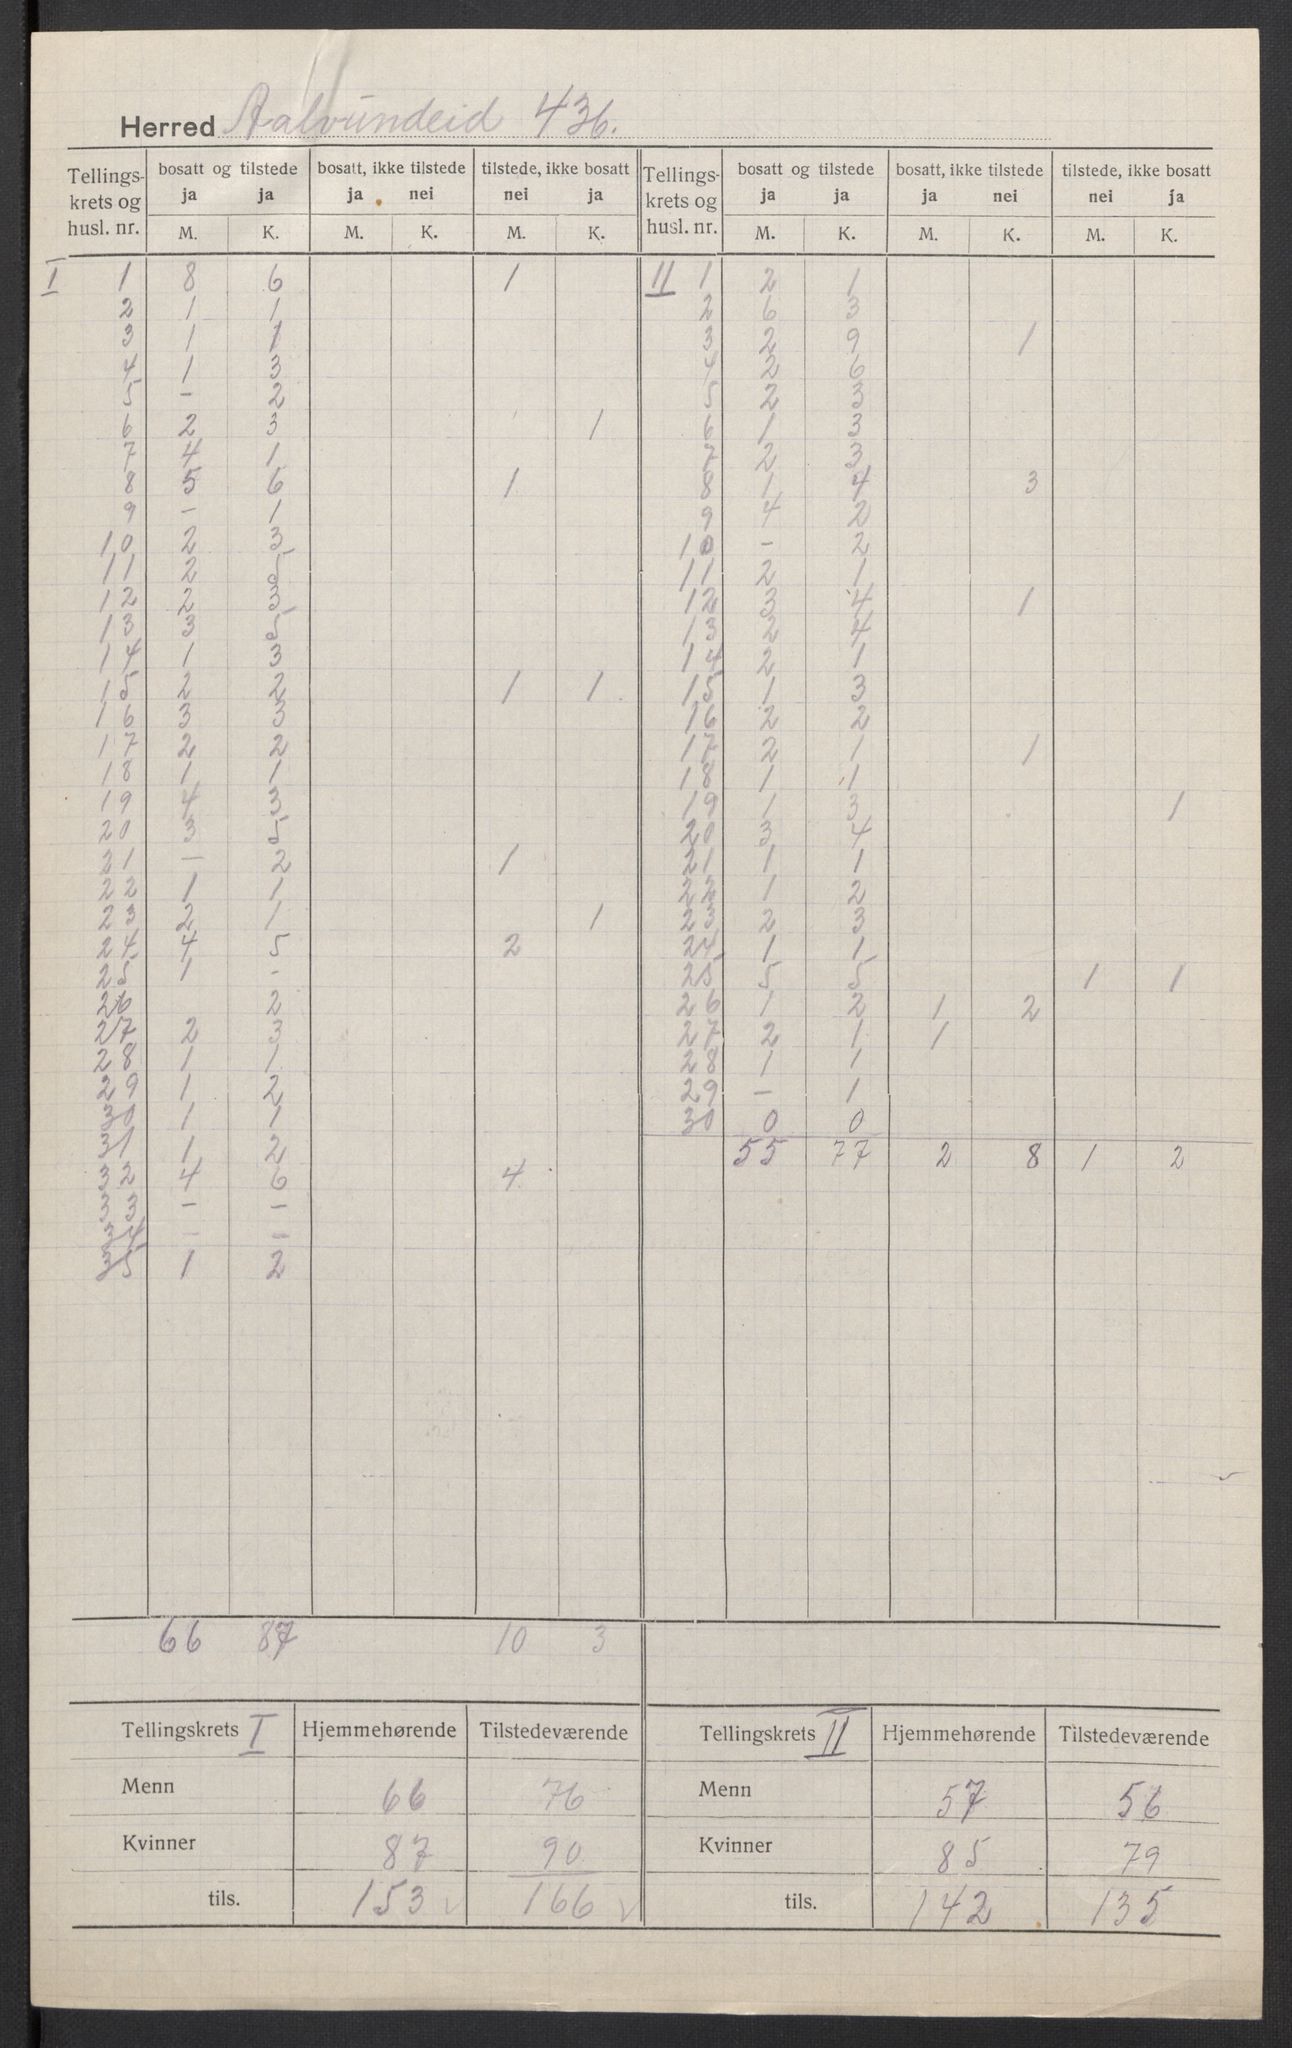 Herred Aalvundeid 436.
Tellings- krets og husl. nr. | bosatt og tilstede | bosatt, ikke tilstede | tilstede, ikke bosatt | Tellings- krets og husl. nr. | bosatt og tilstede | bosatt, ikke tilstede | tilstede, ikke bosatt
ja ja | ja nei | nei ja | ja ja | ja nei | nei ja
M. K. M. K. M. K. | M. K. M. K. M. K.
I 1 8 6 1 | II 1 2 1
2 1 1 | 2 6 3
3 1 1 | 3 2 9 1
4 1 3 | 4 2 6
5 - 2 | 5 2 3
6 2 3 1 | 6 1 3
7 4 1 | 7 2 3
8 5 6 1 | 8 1 4 3
9 - 1 | 9 4 2
10 2 3 | 10 - 2
11 2 5 | 11 2 1
12 2 3 | 12 3 4 1
13 3 5 | 13 2 4
14 1 3 | 14 2 1
15 2 2 1 1 | 15 1 3
16 3 3 | 16 2 2
17 2 2 | 17 2 1 1
18 1 1 | 18 1 1
19 4 3 | 19 1 3 1
20 3 5 | 20 3 4
21 - 2 1 | 21 1 1
22 1 1 | 22 1 2
23 2 1 1 | 23 2 3
24 4 5 2 | 24 1 1
25 1 - | 25 5 5 1 1
26 2 | 26 1 2 1 2
27 2 3 | 27 2 1 1
28 1 1 | 28 1 1
29 1 2 | 29 - 1
30 1 1 | 30 0 0
31 1 2 | 55 77 2 8 1 2
32 4 6 4
33 - -
34 - -
35 1 2
66 87 10 3
Tellingskrets I | Hjemmehørende | Tilstedeværende | Tellingskrets II | Hjemmehørende | Tilstedeværende
Menn 66 76 | Menn 57 56
Kvinner 87 90 | Kvinner 85 79
tils. 153 166 | tils. 142 135